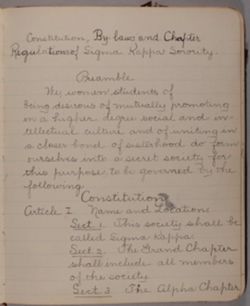 Constitution, By-laws and Chapter
Regulations of Sigma Kappa Sorority.
Preamble
We, women students of
being desirous of mutually promoting
in a higher degree social and in-
tellectual culture and of uniting in
a closer bond of sisterhood do form
ourselves into a secret society for
this purpose to be governed by the
following
Constitution
Article I. Name and Location.
Sect 1. This society shall be
called Sigma Kappa.
Sect 2. The Grand Chapter
shall include all members
of the society.
Sect 3. The Alpha Chapter